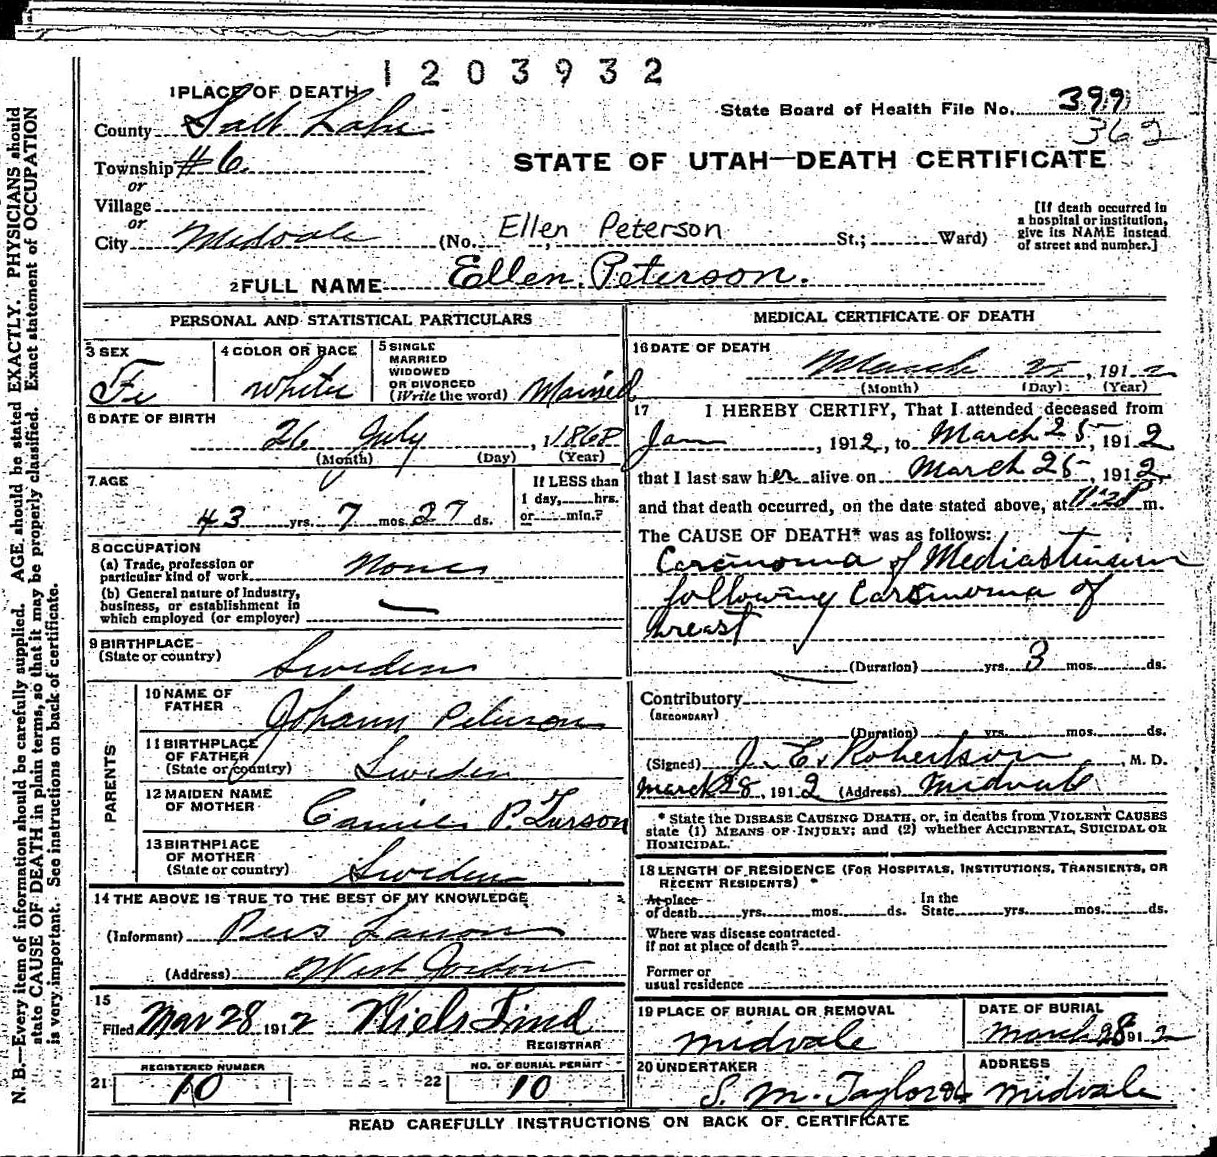 1203932
1 PLACE OF DEATH
State Board of Health File No. 399
362
County Salt Lake
STATE OF UTAH—DEATH CERTIFICATE
Township #6.
or
Village
or
City Midvale (No. Ellen Peterson St.; Ward)
[If death occurred in
a hospital or institution,
give its NAME instead
of street and number.]
2 FULL NAME Ellen Peterson.
PERSONAL AND STATISTICAL PARTICULARS
3 SEX
Fe
4 COLOR OR RACE
White
5 SINGLE
MARRIED
WIDOWED
OR DIVORCED
(Write the word) Married
6 DATE OF BIRTH
26 July, 1 1868
(Month) (Day) (Year)
7 AGE
43 yrs. 7 mos. 27 ds.
If LESS than
1 day, hrs.
or min.?
8 OCCUPATION
(a) Trade, profession or
particular kind of work None
(b) General nature of industry,
business, or establishment in
which employed (or employer)
9 BIRTHPLACE
(State or country) Sweden
PARENTS
10 NAME OF
FATHER Johann Peterson
11 BIRTHPLACE
OF FATHER
(State or country) Sweden
12 MAIDEN NAME
OF MOTHER P. Turson
13 BIRTHPLACE
OF MOTHER
(State or country) Sweden
14 THE ABOVE IS TRUE TO THE BEST OF MY KNOWLEDGE
(Informant)
(Address) West Jordon
15
Filed Mar 28 1912 Niels Lind
REGISTRAR
21 REGISTERED NUMBER
10
22 NO. OF BURIAL PERMIT
10
MEDICAL CERTIFICATE OF DEATH
16 DATE OF DEATH
March 25, 1912
(Month) (Day) (Year)
17 I HEREBY CERTIFY, That I attended deceased from
Jan, 1912, to March 25, 1912
that I last saw her alive on March 25, 1912
and that death occurred, on the date stated above, at m.
The CAUSE OF DEATH* was as follows:
Carcinoma of Mediastinum
following Carcinoma of
breast
(Duration) yrs. 3 mos. ds.
Contributory
(SECONDARY)
(Duration) yrs. mos. ds.
(Signed) J. E. Robertson, M. D.
March 28, 1912 (Address) Midvale
* State the DISEASE CAUSING DEATH, or, in deaths from VIOLENT CAUSES
state (1) MEANS OF INJURY; and (2) whether ACCIDENTAL, SUICIDAL OR
HOMICIDAL.
18 LENGTH OF RESIDENCE (FOR HOSPITALS, INSTITUTIONS, TRANSIENTS, OR
RECENT RESIDENTS)
At place
of death yrs. mos. ds. In the
State yrs. mos. ds.
Where was disease contracted
if not at place of death?
Former or
usual residence
19 PLACE OF BURIAL OR REMOVAL
Midvale
DATE OF BURIAL
March 28 1912
20 UNDERTAKER
S. M. Taylor
ADDRESS
Midvale
READ CAREFULLY INSTRUCTIONS ON BACK OF CERTIFICATE
N. B.—Every item of information should be carefully supplied. AGE should be stated EXACTLY. PHYSICIANS should
state CAUSE OF DEATH in plain terms, so that it may be properly classified. Exact statement of OCCUPATION
is very important. See instructions on back of certificate.